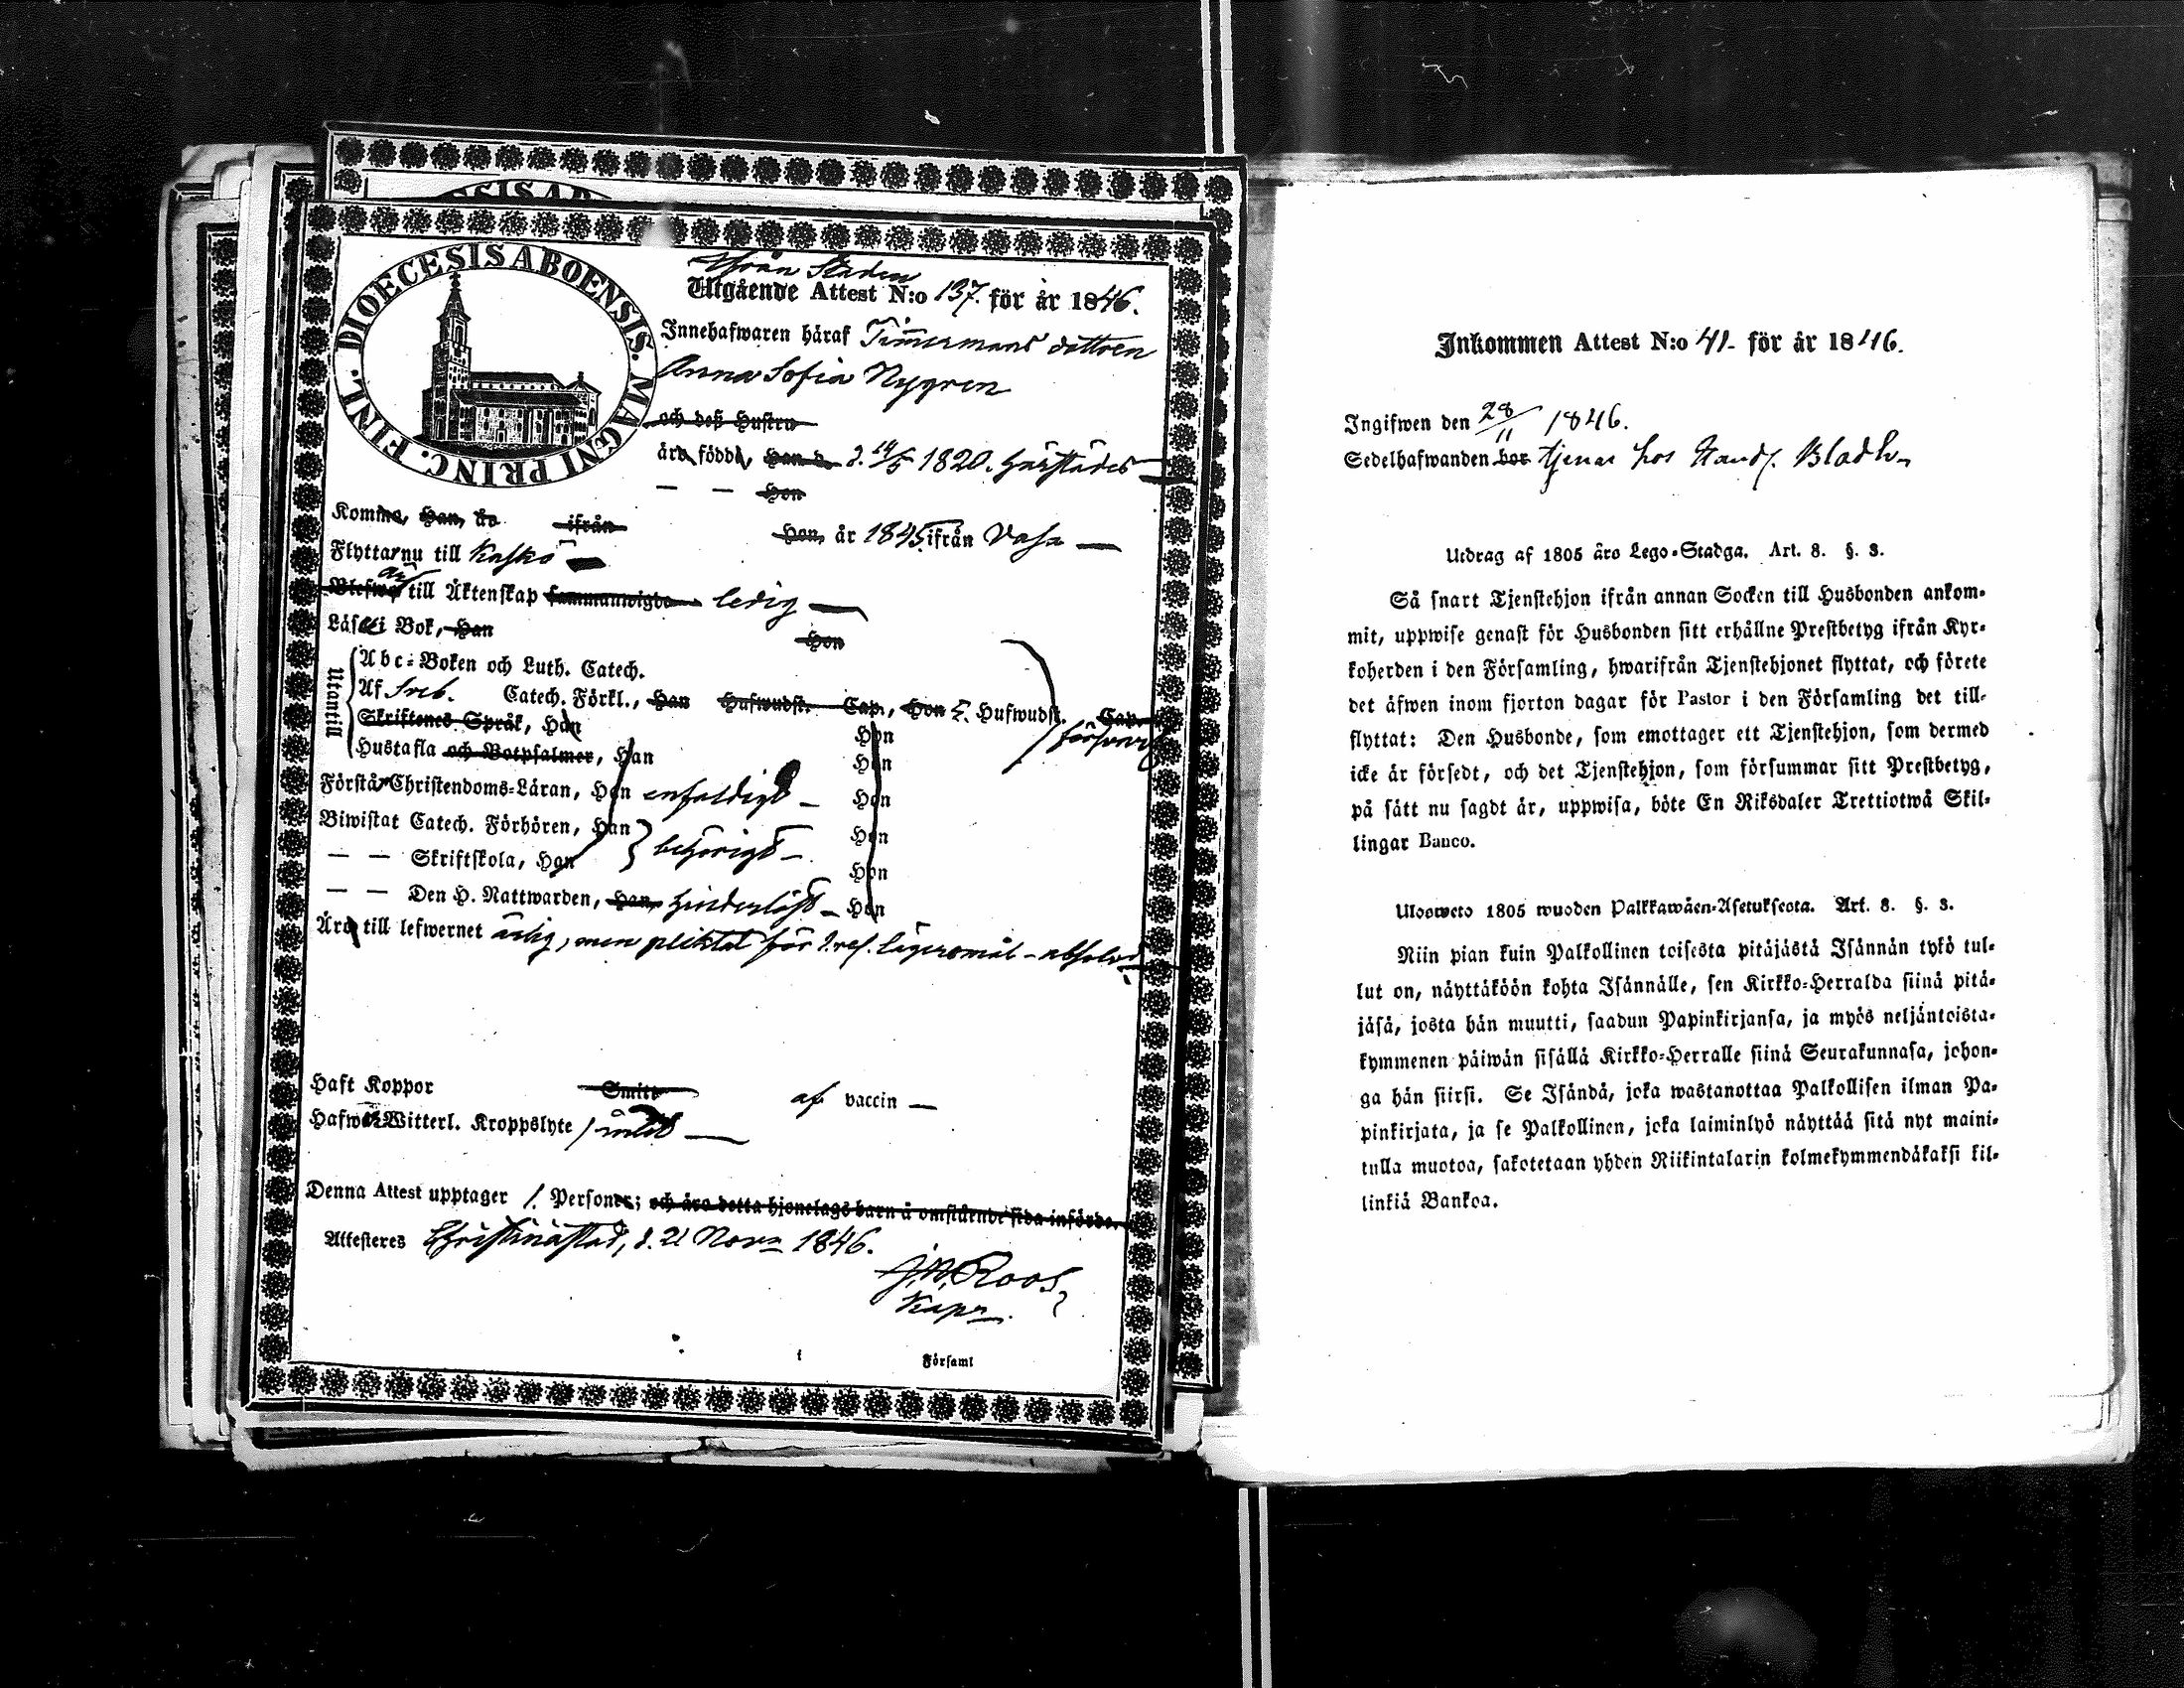 DIOECESIS ABOENSIS. MAGNI PRINC. FINL.
ifrån Staden
Utgående Attest N:o 137. för år 1846.
Innehafwaren häraf Timmermans dottren
Anna Sofia Nygren
och deß Hustru
äro födde, Han d. d. 14/5 1820. härstädes
— — Hon
Komne, Han, år ifrån Hon, år 1845 ifrån Vasa —
Flyttar nu till Kaskö —
Blefwo är till Äktenskap sammanwigde ledig —
Läse i Bok, Han Hon
Utantill
Abc-Boken och Luth. Catech.
Af Sveb. Catech. Förkl., Han Hufwudst. Cap., Hon 5. Hufwudst. Cap.
Skriftenes Språk, Han Hon försvarl
Hustafla och Botpsalmer, Han Hon
Förstår Christendoms-Läran, Han enfaldigt — Hon
Biwistat Catech. Förhören, Han Hon
— — Skriftskola, Han behörigt — Hon
— — Den H. Nattwarden, Han, hinderlöst — Hon
Äro till lefwernet ärlig, men pliktat för 1. res. lägersmål - absolv
Haft Koppor Smitt af vaccin —
Hafwer Witterl. Kroppslyte / intet —
Denna Attest upptager 1. Personer; och äro detta hjonelags barn å omstående sida införde.
Attesteres Christinæstad, d. 21 Nov. 1846.
J. N. Roos
Kapn.
Församl
Inkommen Attest N:o 41. för år 1846.
Ingifwen den 28/11 1846.
Sedelhafwanden bor tjenar hos Handl. Bladh
Utdrag af 1805 åro Lego-Stadga. Art. 8. §. 3.
Så snart Tjenstehjon ifrån annan Socken till Husbonden ankom-
mit, uppwise genast för Husbonden sitt erhållne Prestbetyg ifrån Kyr-
koherden i den Församling, hwarifrån Tjenstehjonet flyttat, och förete
det äfwen inom fjorton dagar för Pastor i den Församling det till-
flyttat: Den Husbonde, som emottager ett Tjenstehjon, som dermed
icke är försedt, och det Tjenstehjon, som försummar sitt Prestbetyg,
på sätt nu sagdt är, uppwisa, böte En Riksdaler Trettiotwå Skil-
lingar Banco.
Ulosweto 1805 wuoden Palkkawäen-Asetuksesta. Art. 8. §. 3.
Niin pian kuin Palkollinen toisesta pitäjästä Isännän tykö tul-
lut on, näyttäköön kohta Isännälle, sen Kirkko-Herralda siinä pitä-
jäsä, josta hän muutti, saadun Papinkirjansa, ja myös neljäntoista-
kymmenen päiwän sisällä Kirkko-Herralle siinä Seurakunnasa, johon-
ga hän siirsi. Se Isändä, joka wastanottaa Palkollisen ilman Pa-
pinkirjata, ja se Palkollinen, joka laiminlyö näyttää sitä nyt maini-
tulla muotoa, sakotetaan yhden Riikintalarin kolmekymmendäkaksi kil-
linkiä Bankoa.